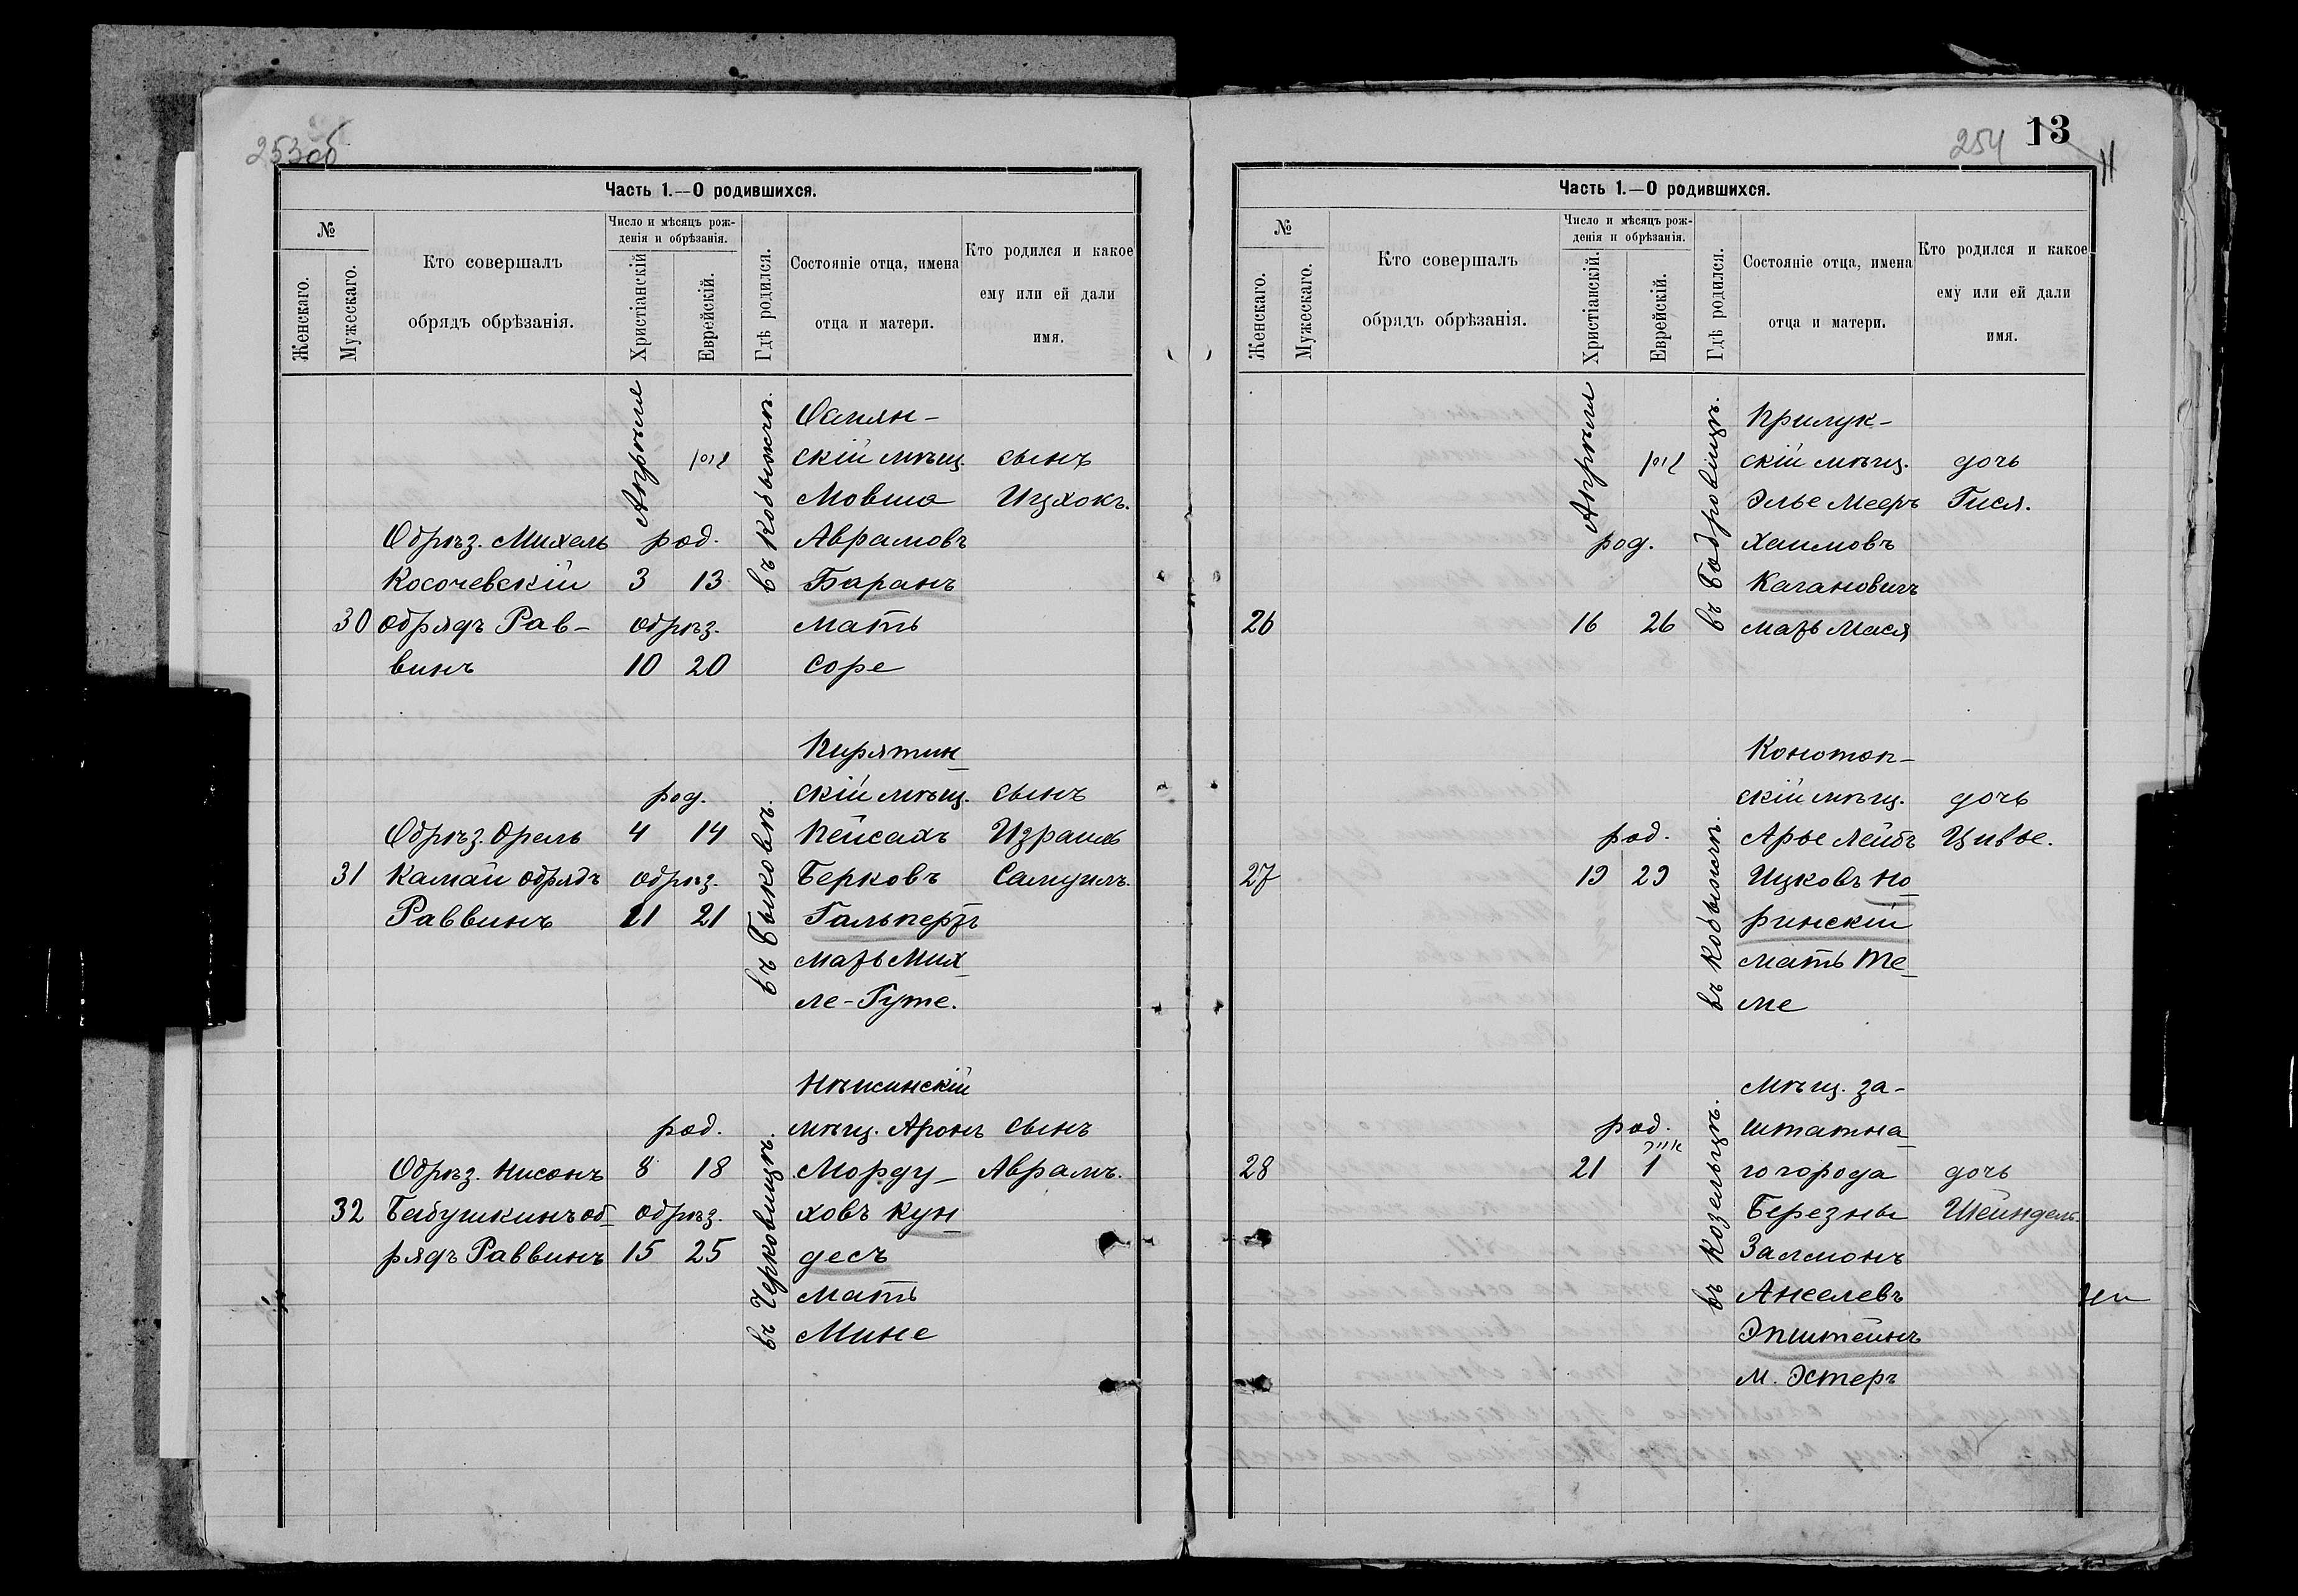 253об
Часть 1.—О родившихся.
№
Женскаго.
Мужескаго.
Кто совершалъ
обрядъ обрѣзанія.
Число и мѣсяцъ рож-
денія и обрѣзанія.
Христіанскій
Еврейскій.
Гдѣ родился.
Состояніе отца, имена
отца и матери.
Кто родился и какое
ему или ей дали
имя.
30
Обрѣз. Михель
Косочевскій
обрядъ Рав-
винъ
Апрѣля
род.
3 13
обрѣз.
10 20
въ Кобыжчѣ.
скій мѣщ.
Мовша
Аврамовъ
Баранъ
мать
Соре
сынъ
Ицхокъ.
31
Обрѣз. Орель
Камай обрядъ
Раввинъ
род.
4 14
обрѣз.
11 21
въ Быковѣ.
Пирятин
скій мѣщ.
Пейсахъ
Берковъ
Гальперъ
мать Мих
ле-Гуте.
сынъ
Израиль
Самуилъ.
32
Обрѣз. Нисонъ
Бабушкинъ об
рядъ Раввинъ
род.
8 18
обрѣз.
15 25
въ Черковицѣ.
Нѣжинскій
мѣщ. Аронъ
Морду-
ховъ Кун
десъ
Мать
Мине
сынъ
Аврамъ.
254
13
11
Часть 1.—О родившихся.
№
Женскаго.
Мужескаго.
Кто совершалъ
обрядъ обрѣзанія.
Число и мѣсяцъ рож-
денія и обрѣзанія.
Христіанскій.
Еврейскій.
Гдѣ родился.
Состояніе отца, имена
отца и матери.
Кто родился и какое
ему или ей дали
имя.
26
Апрѣля
род.
16 26
въ Бобровицѣ.
Прилук-
скій мѣщ.
Элье Мееръ
Хаимовъ
Кагановичъ
мать Мася
дочь
Гися.
27
род.
19 29
въ Кобыжчѣ.
Конотоп-
скій мѣщ.
Арье Лейбъ
Ицковъ Но
ринскій
мать Те
ме
дочь
Цивье.
28
род.
21 1
въ Козельцѣ.
Мѣщ. за-
штатна
го города
Березны
Залмонъ
Анселевъ
Эпштейнъ
М. Эстеръ
дочь
Шейндель